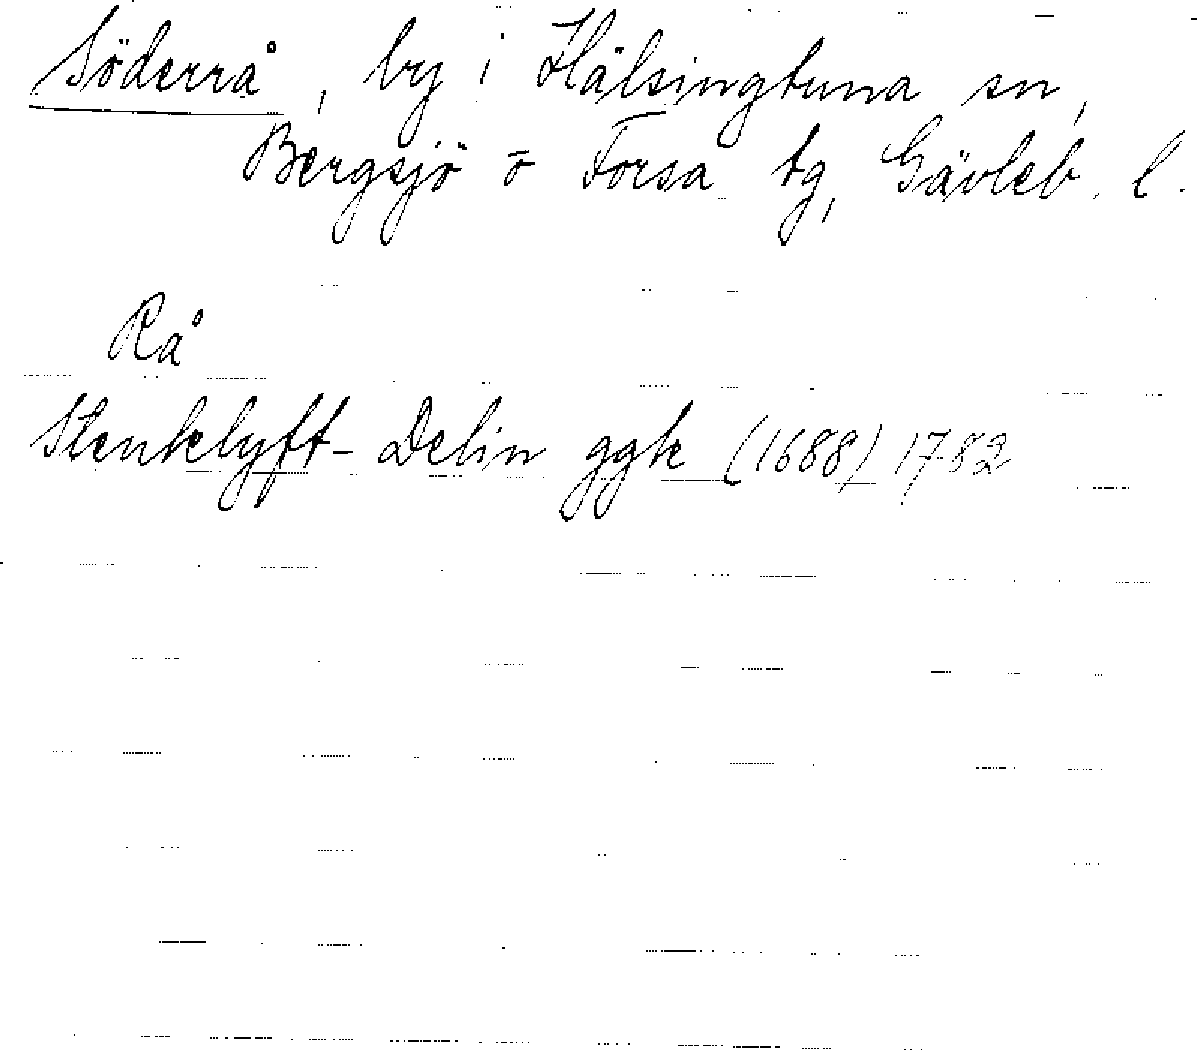 Söderrå, by i Hälsingtuna sn,
Bergsjö o Forsa tg, Gävleb. l.
Rå
Stenklyft-Delin ggk (1688) 1782